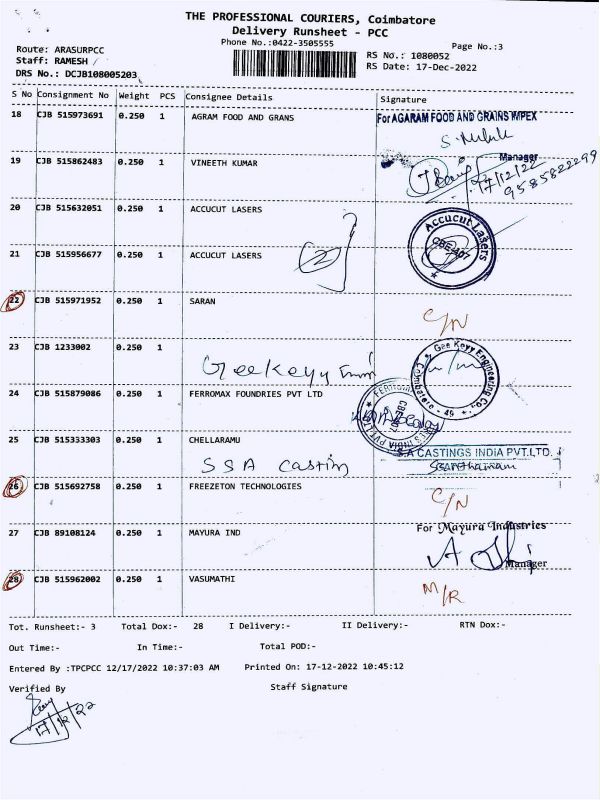 THE PROFESSIONAL COURIERS, Coimbatore
Delivery Runsheet - PCC
Phone No.:0422-3505555
Page No.:3
Route: ARASURPCC
Staff: RAMESH /
DRS No.: DCJB108005203
RS No.: 1080052
RS Date: 17-Dec-2022
S No Consignment No Weight PCS Consignee Details Signature
18 CJB 515973691 0.250 1 AGRAM FOOD AND GRANS For AGARAM FOOD AND GRAINS IMPEX
Manager
19 CJB 515862483 0.250 1 VINEETH KUMAR 17/12/22
9585822299
20 CJB 515632051 0.250 1 ACCUCUT LASERS Accucut Lasers
CBE-407
21 CJB 515956677 0.250 1 ACCUCUT LASERS 2
22 CJB 515971952 0.250 1 SARAN C/N
23 CJB 1233002 0.250 1
Geekeyy
Gee Keyy Engineering Co.
Coimbatore - 49
24 CJB 515879086 0.250 1 FERROMAX FOUNDRIES PVT LTD
25 CJB 515333303 0.250 1 CHELLARAMU
SSA Casting
S.A CASTINGS INDIA PVT.LTD.
26 CJB 515692758 0.250 1 FREEZETON TECHNOLOGIES C/N
27 CJB 89108124 0.250 1 MAYURA IND For Mayura Industries
Manager
28 CJB 515962002 0.250 1 VASUMATHI M/R
Tot. Runsheet:- 3 Total Dox:- 28 I Delivery:- II Delivery:- RTN Dox:-
Out Time:- In Time:- Total POD:-
Entered By :TPCPCC 12/17/2022 10:37:03 AM Printed On: 17-12-2022 10:45:12
Verified By Staff Signature
17/12/22